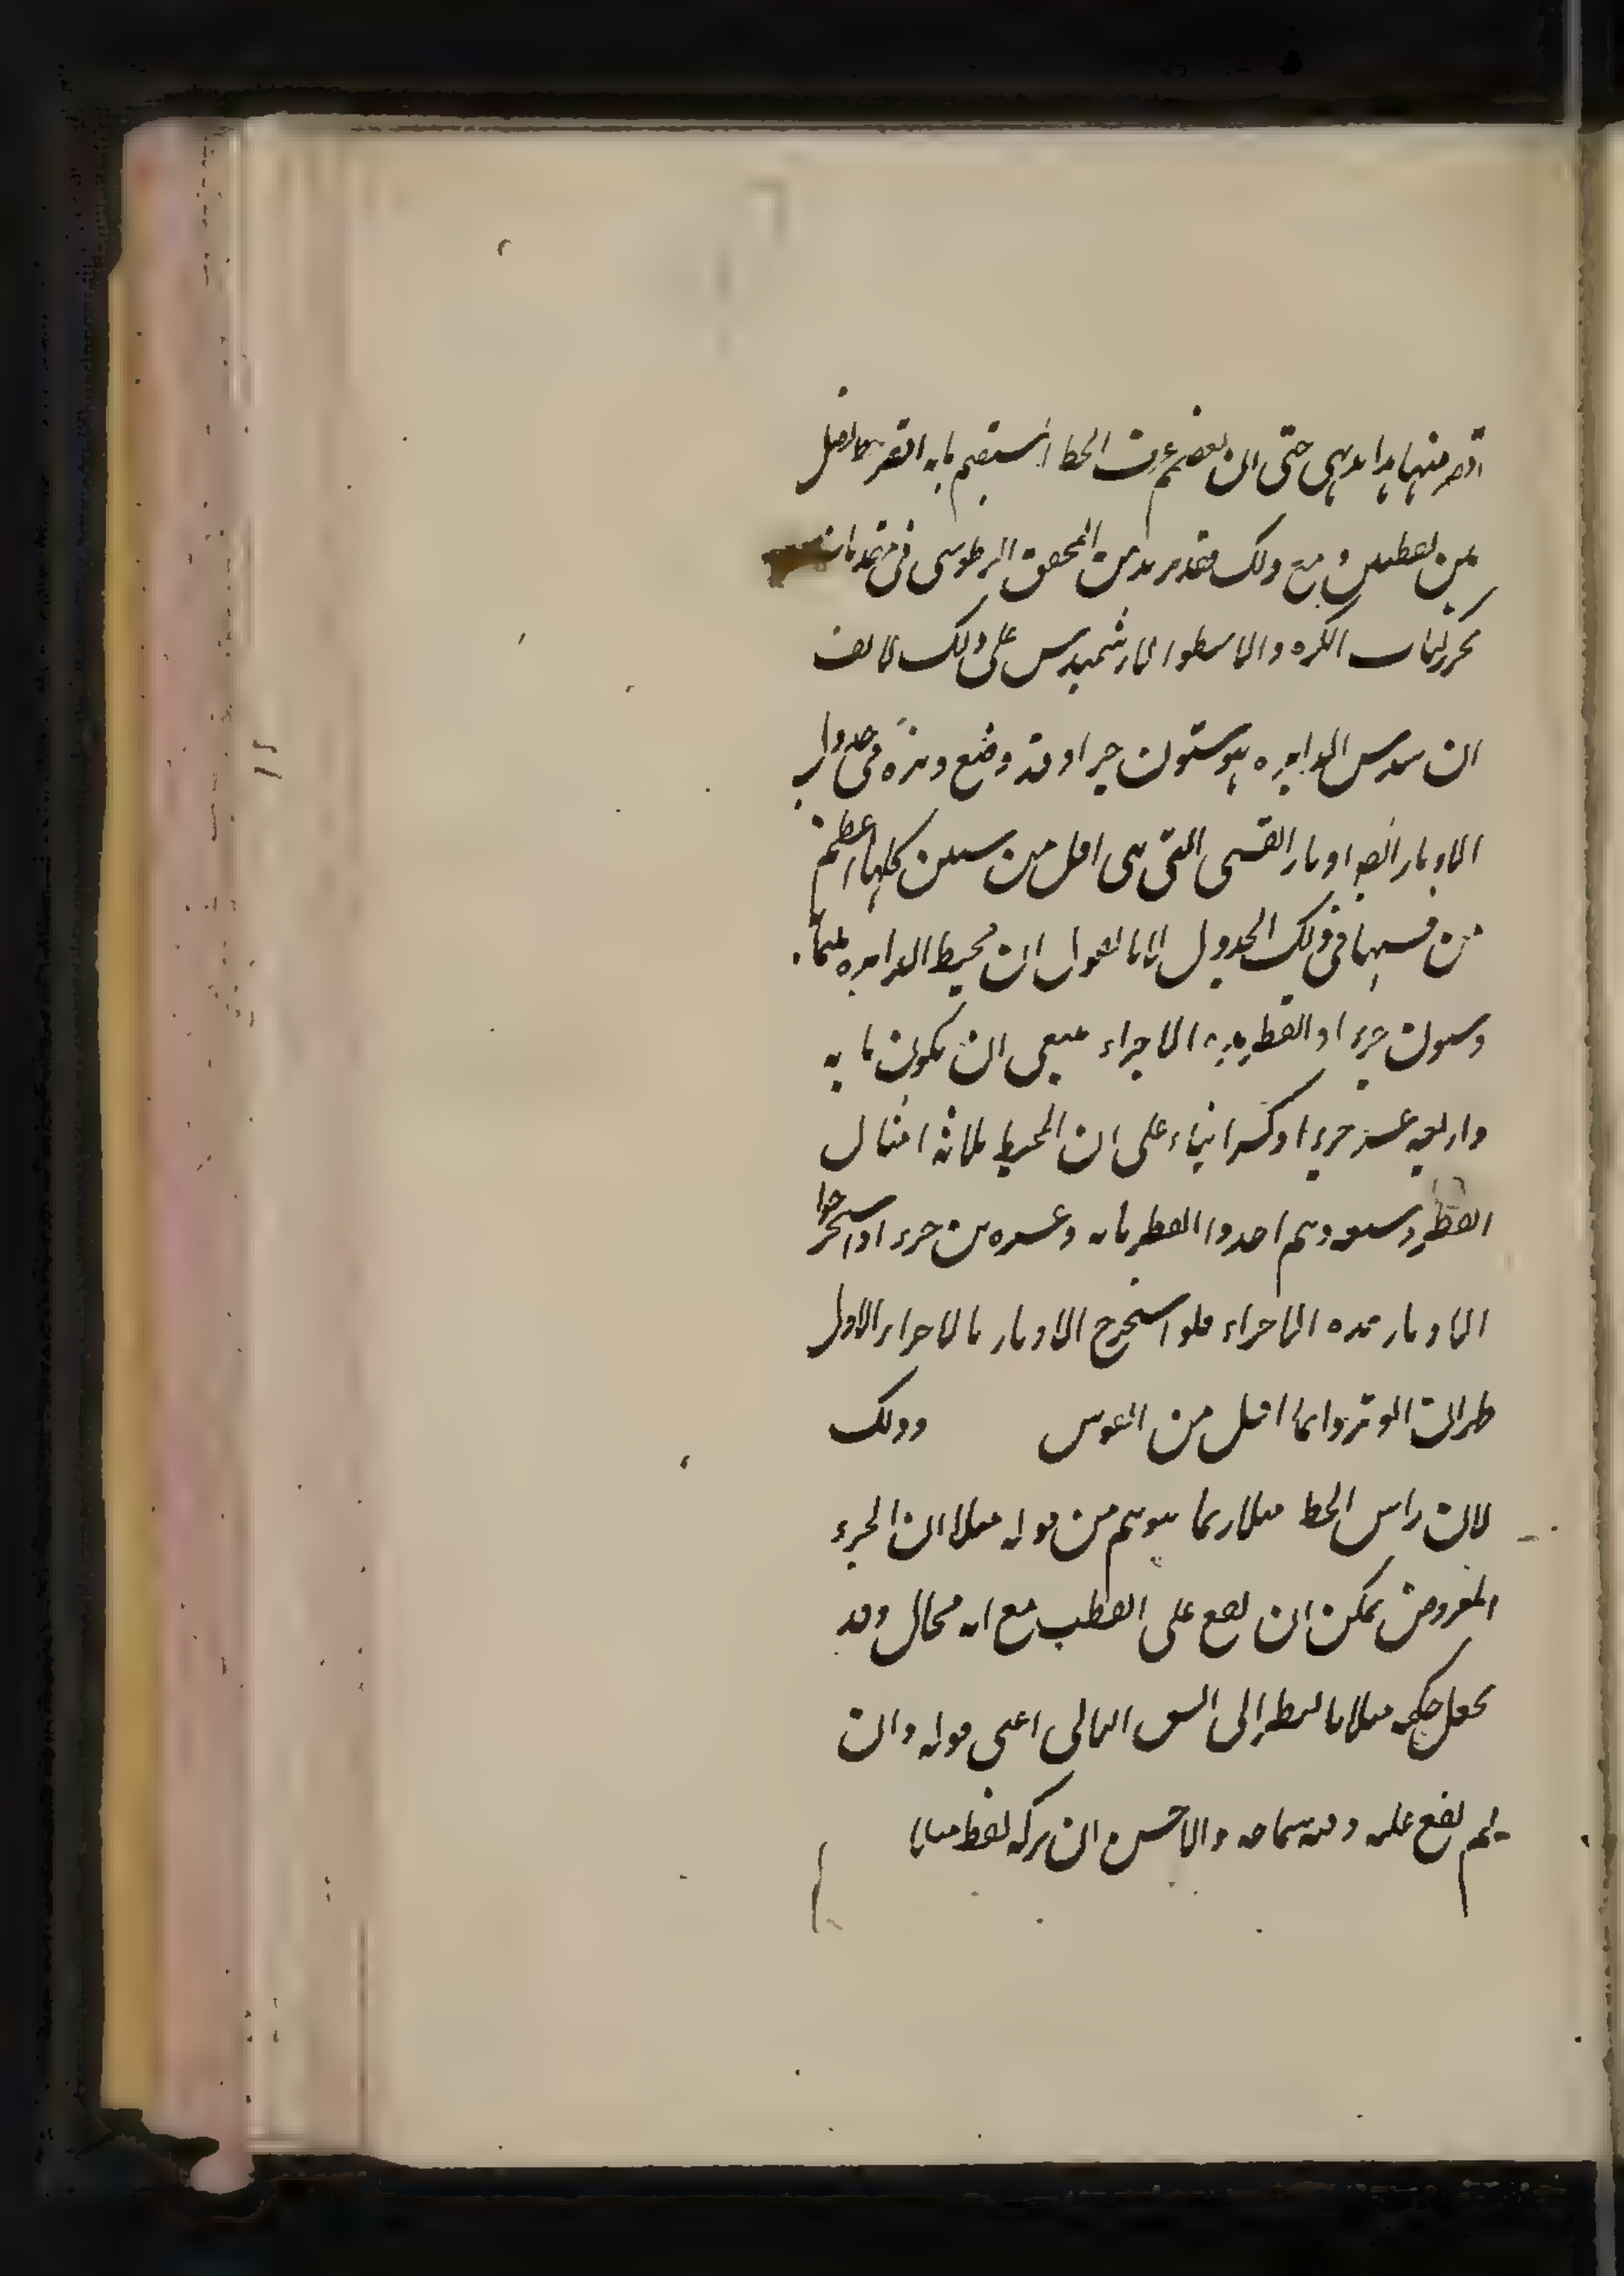 اقصر منها بداهة حتى ان بعضهم عرف الخط المستقيم بانه اقصر ما يصل
بين نقطتين ومع ذلك فقد برهن المحقق الطوسى فى مقدمات
تحرير كتاب الكره والاسطوانه لارشميدس على ذلك لا يقال
ان سدس الدايره هو ستون جزءا وقد وضع وتره فى جدول
الاوتار ايضا اوتار القسى التى هى اقل من ستين كلها اعظم
من قسيها فى ذلك الجدول لانا نقول ان محيط الدايره ثلثمائة
وستون جزءا والقطر بهذه الاجزاء ينبغى ان يكون مايه
واربعه عشر جزءا وكسرا بناء على ان المحيط ثلاثة امثال
القطر وسبعه وهم اخذوا القطر مايه وعشرين جزءا واستخرجوا
الاوتار بهذه الاجزاء فلو استخرج الاوتار بالاجزاء الاول
ظهر ان الوتر دائما اقل من القوس وذلك
لان راس الخط مثلا ربما يتوهم من قوله مثلا ان الجزء
المفروض يمكن ان يقع على القطب مع انه محال وقد
يجعل حكمه مثلا بالنظر الى الشق التالى اعنى قوله وان
لم يقع عليه وفيه سماجه والاحسن ان يترك لفظ مثلا